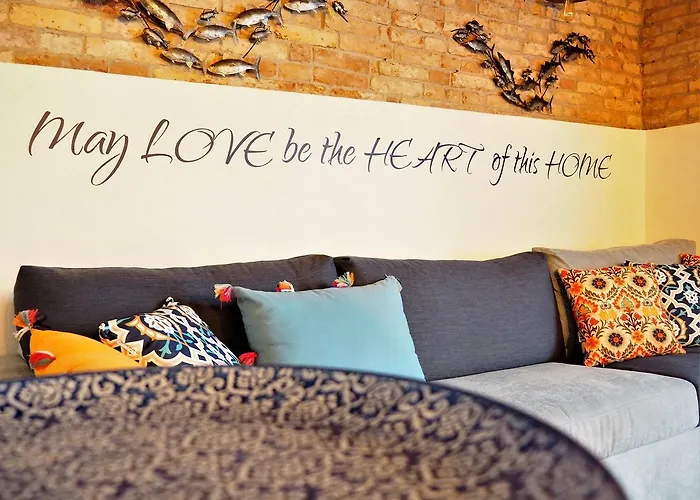 May LOVE be the HEART of this HOME